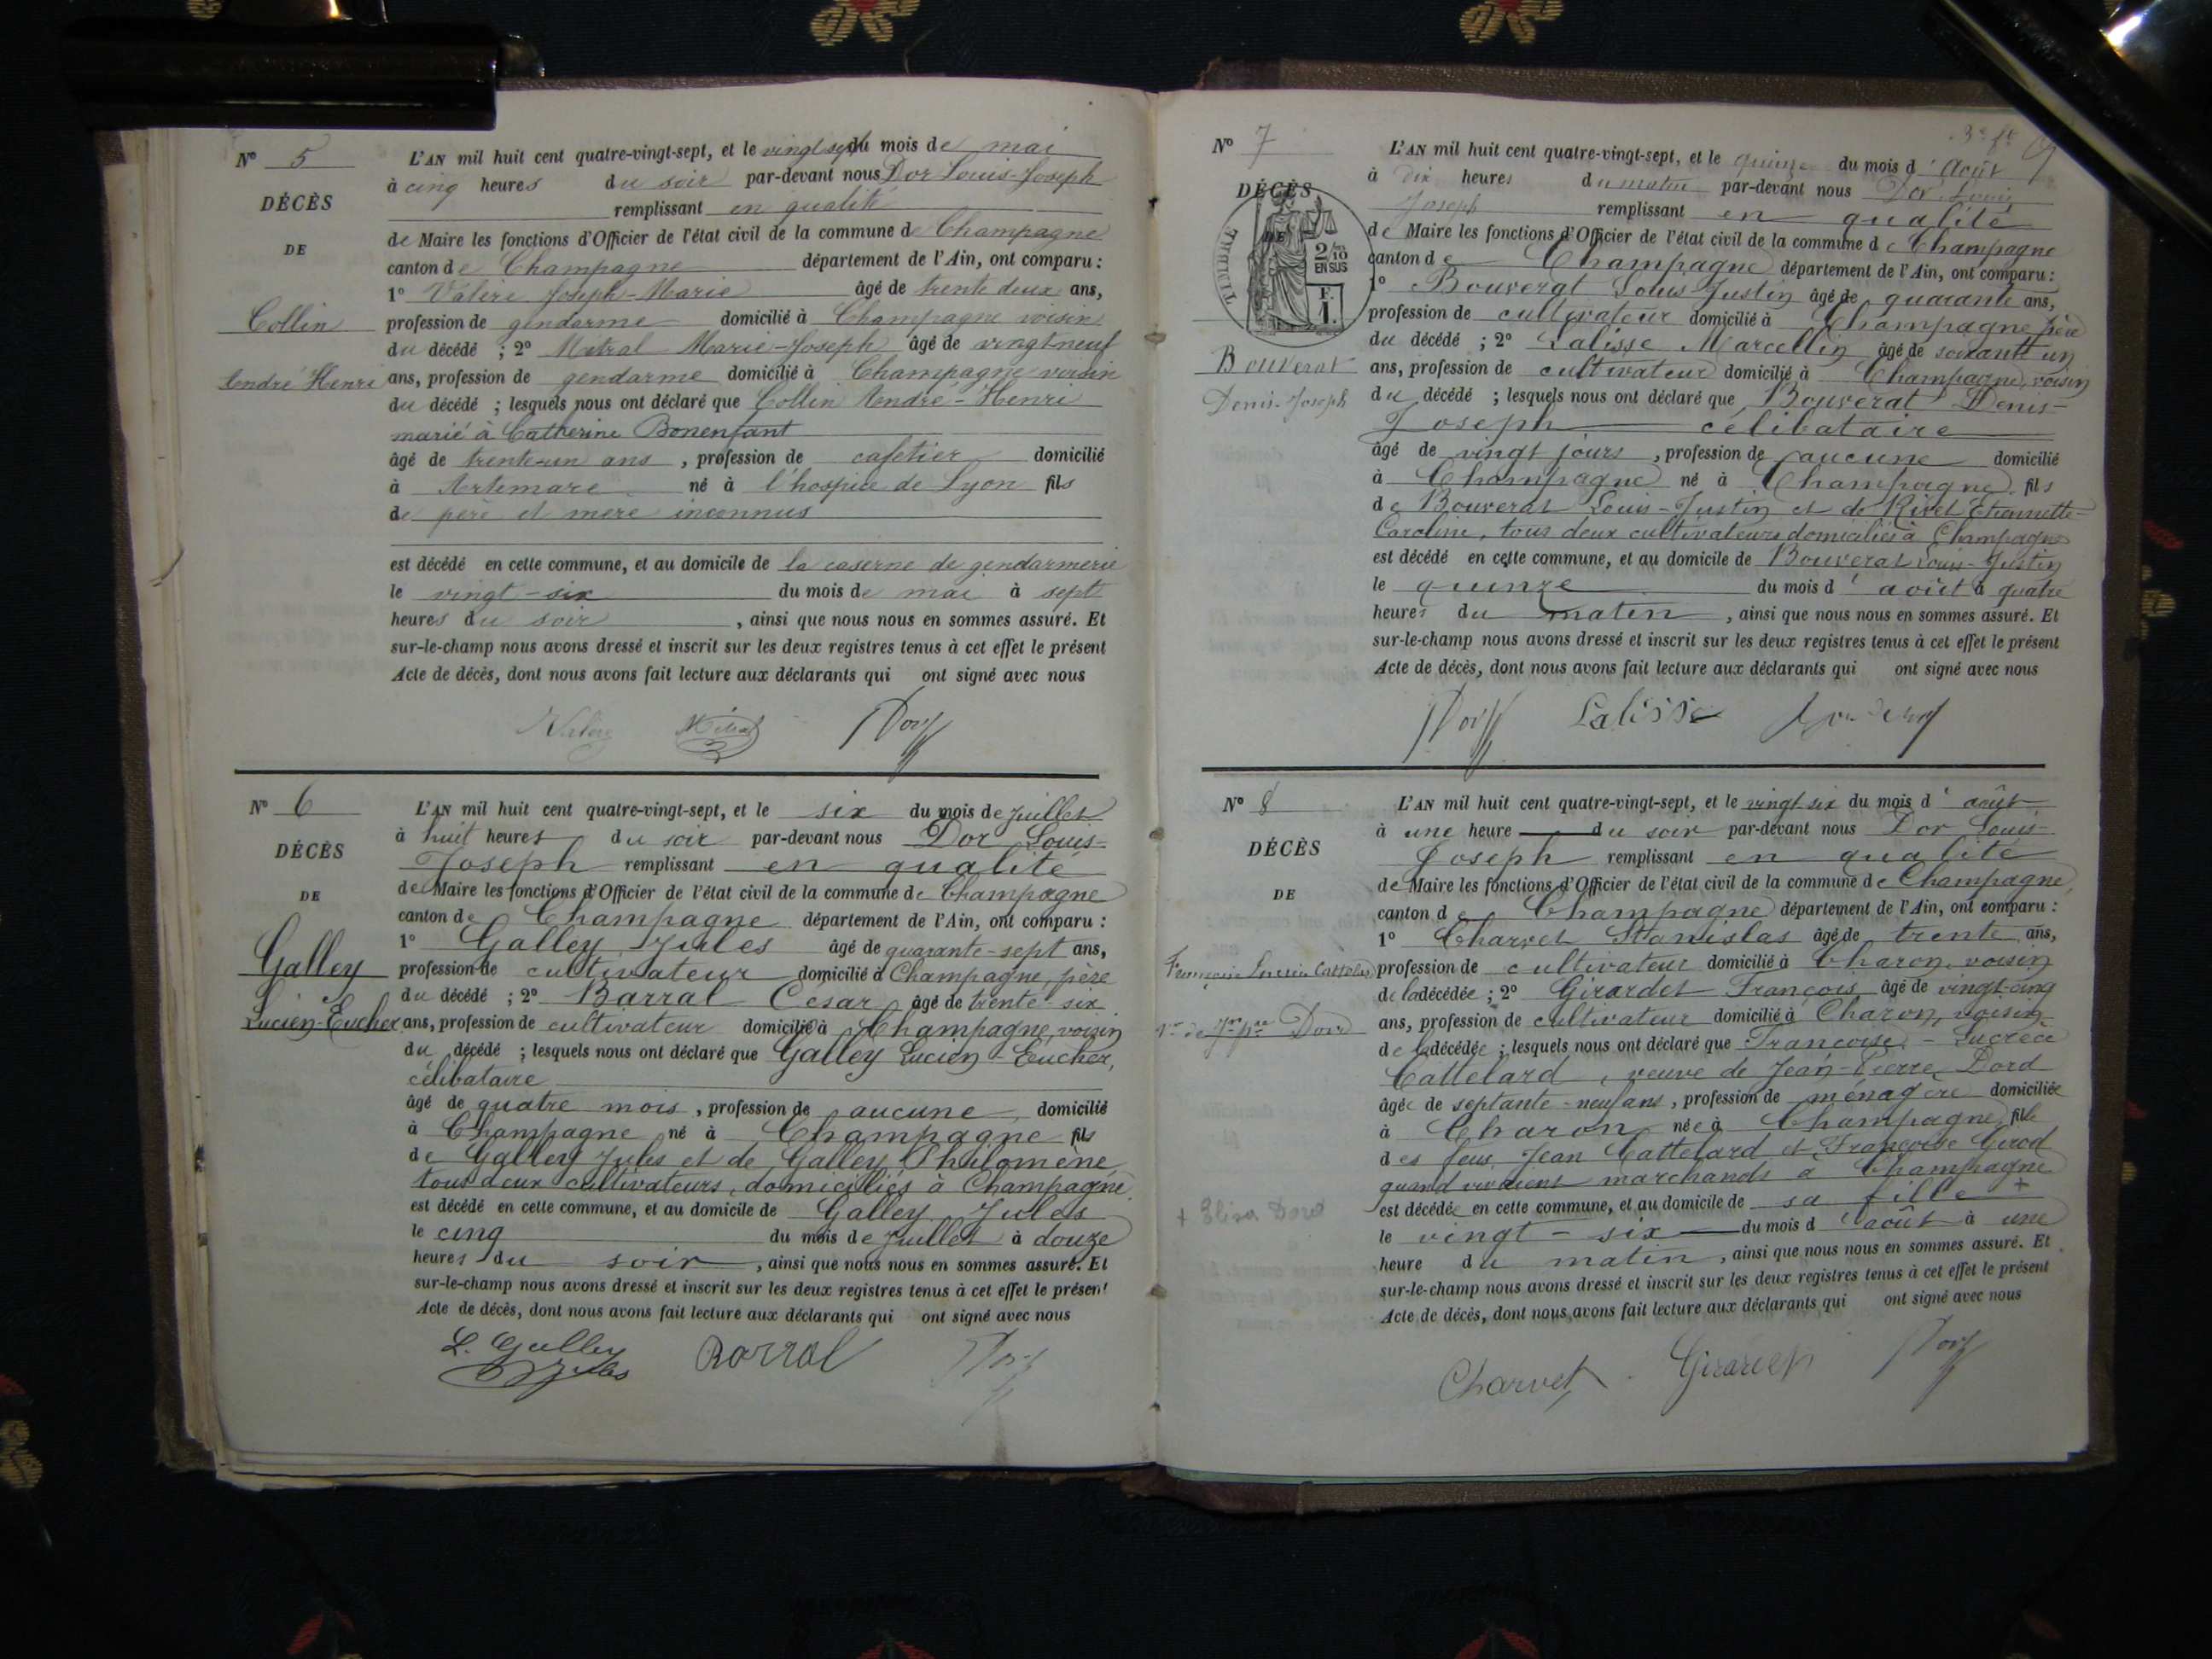 N° 5
DÉCÈS
DE
Collin
André Henri
L'AN mil huit cent quatre-vingt-sept, et le vingt sept du mois de mai
à cinq heures du soir par-devant nous Dor Louis-Joseph
remplissant en qualité
de Maire les fonctions d'Officier de l'état civil de la commune de Champagne
canton de Champagne département de l'Ain, ont comparu :
1° Valère Joseph-Marie âgé de trente deux ans,
profession de gendarme domicilié à Champagne voisin
du décédé ; 2° Métral Marie-Joseph âgé de vingt neuf
ans, profession de gendarme domicilié à Champagne voisin
du décédé ; lesquels nous ont déclaré que Collin André-Henri
marié à Catherine Bonenfant
âgé de trente-un ans , profession de cafetier domicilié
à Artemare né à l'hospice de Lyon fils
de père et mère inconnus
est décédé en cette commune, et au domicile de la caserne de gendarmerie
le vingt-six du mois de mai à sept
heures du soir , ainsi que nous nous en sommes assuré. Et
sur-le-champ nous avons dressé et inscrit sur les deux registres tenus à cet effet le présent
Acte de décès, dont nous avons fait lecture aux déclarants qui ont signé avec nous
Valère Métral Dor
N° 6
DÉCÈS
DE
Galley
Lucien-Eucher
L'AN mil huit cent quatre-vingt-sept, et le six du mois de juillet
à huit heures du soir par-devant nous Dor Louis-
Joseph remplissant en qualité
de Maire les fonctions d'Officier de l'état civil de la commune de Champagne
canton de Champagne département de l'Ain, ont comparu :
1° Galley Jules âgé de quarante-sept ans,
profession de cultivateur domicilié à Champagne, père
du décédé ; 2° Barral César âgé de trente-six
ans, profession de cultivateur domicilié à Champagne, voisin
du décédé ; lesquels nous ont déclaré que Galley Lucien-Eucher,
célibataire
âgé de quatre mois , profession de aucune domicilié
à Champagne né à Champagne fils
de Galley Jules et de Galley Philomène
tous deux cultivateurs, domiciliés à Champagne
est décédé en cette commune, et au domicile de Galley Jules
le cinq du mois de juillet à douze
heures du soir , ainsi que nous nous en sommes assuré. Et
sur-le-champ nous avons dressé et inscrit sur les deux registres tenus à cet effet le présent
Acte de décès, dont nous avons fait lecture aux déclarants qui ont signé avec nous
L. Galley Jules Barral Dor
N° 7
DÉCÈS
DE
TIMBRE
2/10
EN SUS
Bouverat
Denis-Joseph
L'AN mil huit cent quatre-vingt-sept, et le quinze du mois d'Août
à dix heures du matin par-devant nous Dor Louis
Joseph remplissant en qualité
de Maire les fonctions d'Officier de l'état civil de la commune de Champagne
canton de Champagne département de l'Ain, ont comparu :
1° Bouverat Louis Justin âgé de quarante ans,
profession de cultivateur domicilié à Champagne père
du décédé ; 2° Lalisse Marcellin âgé de soixante un
ans, profession de cultivateur domicilié à Champagne, voisin
du décédé ; lesquels nous ont déclaré que Bouverat Denis-
Joseph célibataire
âgé de vingt jours , profession de aucune domicilié
à Champagne né à Champagne fils
de Bouverat Louis-Justin et de Rivet Etiennette-
Caroline, tous deux cultivateurs domiciliés à Champagne
est décédé en cette commune, et au domicile de Bouverat Louis-Justin
le quinze du mois d'août à quatre
heures du matin , ainsi que nous nous en sommes assuré. Et
sur-le-champ nous avons dressé et inscrit sur les deux registres tenus à cet effet le présent
Acte de décès, dont nous avons fait lecture aux déclarants qui ont signé avec nous
Dor Lalisse Bouverat
N° 8
DÉCÈS
DE
Françoise Lucrèce Cattelard
Dord
+ Elisa Dord
L'AN mil huit cent quatre-vingt-sept, et le vingt six du mois d'août
à une heure du soir par-devant nous Dor Louis-
Joseph remplissant en qualité
de Maire les fonctions d'Officier de l'état civil de la commune de Champagne
canton de Champagne département de l'Ain, ont comparu :
1° Charvet Stanislas âgé de trente ans,
profession de cultivateur domicilié à Charon, voisin
de la décédée ; 2° Girardet François âgé de vingt-cinq
ans, profession de cultivateur domicilié à Charon, voisin
de la décédée ; lesquels nous ont déclaré que Françoise-Lucrèce
Cattelard, veuve de Jean-Pierre Dord
âgée de septante-neuf ans , profession de ménagère domiciliée
à Charon née à Champagne fille
des feus Jean Cattelard et Françoise Girod
quand vivaient marchands à Champagne
est décédée en cette commune, et au domicile de sa fille +
le vingt-six du mois d'août à une
heure du matin , ainsi que nous nous en sommes assuré. Et
sur-le-champ nous avons dressé et inscrit sur les deux registres tenus à cet effet le présent
Acte de décès, dont nous avons fait lecture aux déclarants qui ont signé avec nous
Charvet Girardet Dor